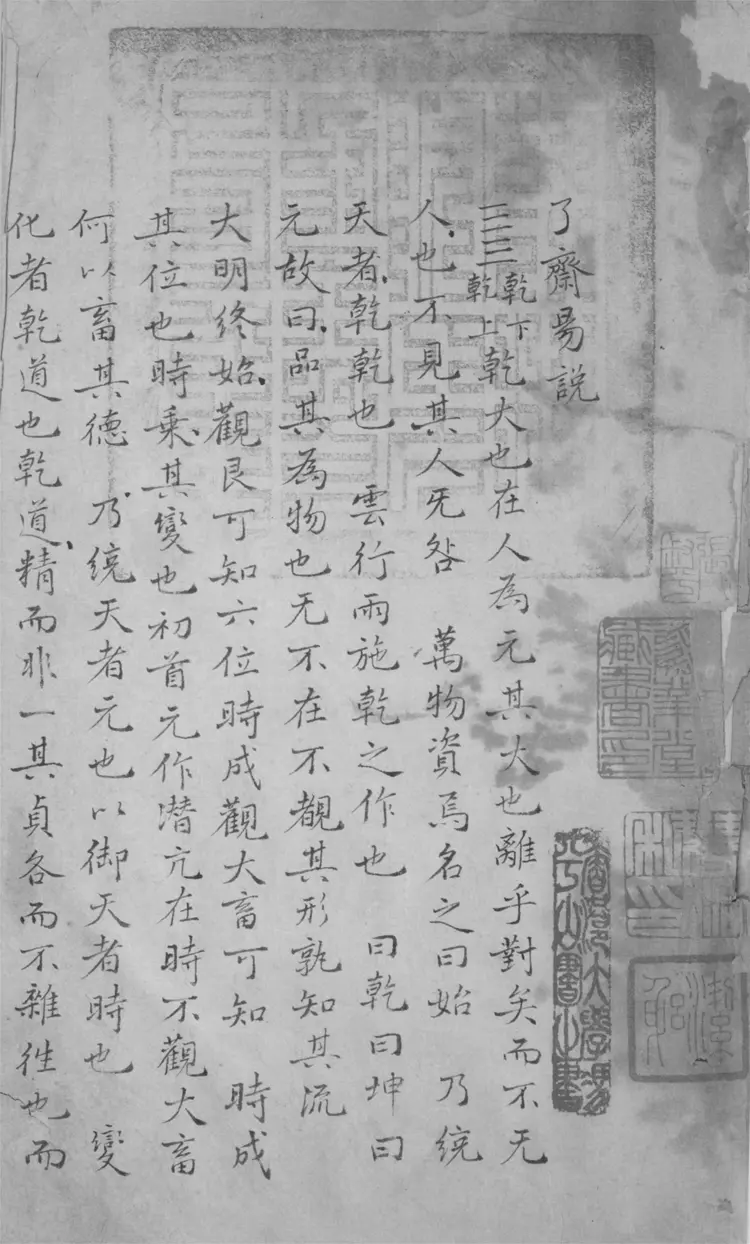 了齋易説
䷀乾下乾上乾大也在人為元其大也離乎對矣而不无
人也不見其人旡咎 萬物資焉名之曰始 乃統
天者乾乾也 雲行雨施乾之作也 曰乾曰坤曰
元故曰品其為物也无不在不覩其形孰知其流
大明終始觀艮可知六位時成觀大畜可知 時成
其位也時乘其變也初首元作潜亢在時不觀大畜
何以畜其德 乃統天者元也以御天者時也 變
化者乾道也乾道精而非一其貞各而不雜徃也而